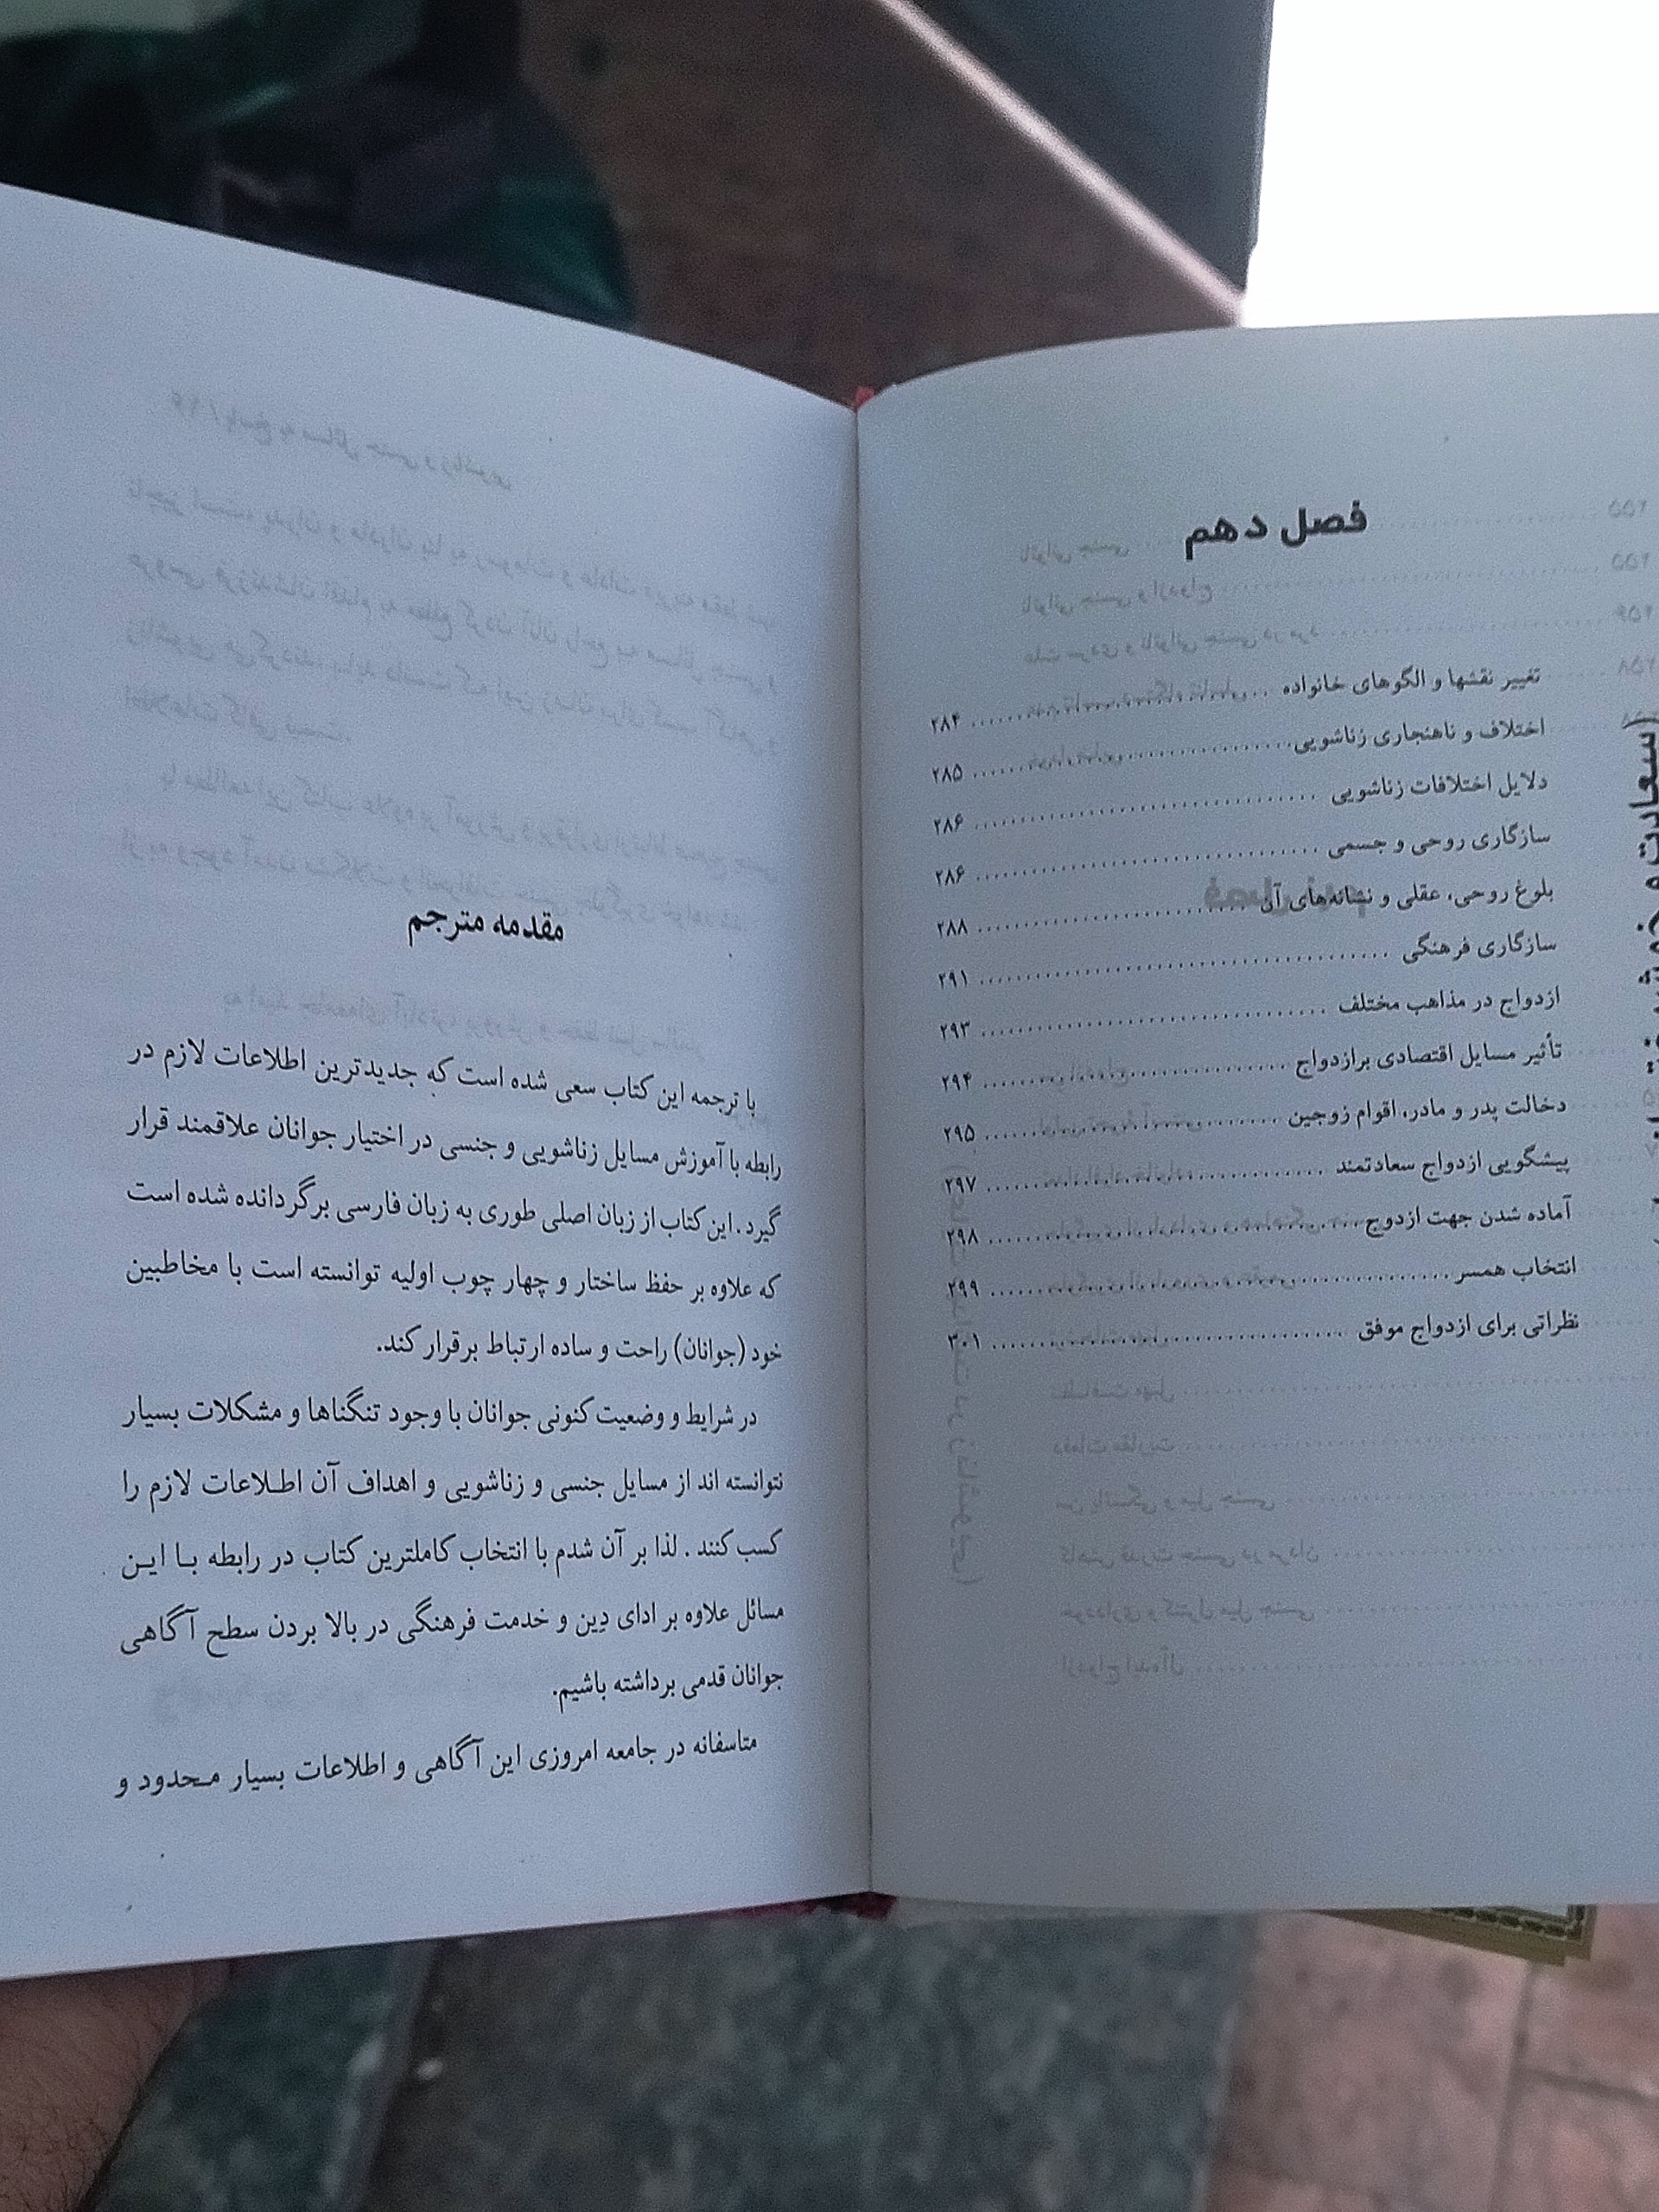 فصل دهم
تغییر نقشها و الگوهای خانواده ... ۲۸۴
اختلاف و ناهنجاری زناشویی ... ۲۸۵
دلایل اختلافات زناشویی ... ۲۸۶
سازگاری روحی و جسمی ... ۲۸۶
بلوغ روحی، عقلی و نشانه‌های آن ... ۲۸۸
سازگاری فرهنگی ... ۲۹۱
ازدواج در مذاهب مختلف ... ۲۹۳
تأثیر مسایل اقتصادی برازدواج ... ۲۹۴
دخالت پدر و مادر، اقوام زوجین ... ۲۹۵
پیشگویی ازدواج سعادتمند ... ۲۹۷
آماده شدن جهت ازدوج ... ۲۹۸
انتخاب همسر ... ۲۹۹
نظراتی برای ازدواج موفق ... ۳۰۱
مقدمه مترجم
با ترجمه این کتاب سعی شده است که جدیدترین اطلاعات لازم در
رابطه با آموزش مسایل زناشویی و جنسی در اختیار جوانان علاقمند قرار
گیرد. این کتاب از زبان اصلی طوری به زبان فارسی برگردانده شده است
که علاوه بر حفظ ساختار و چهار چوب اولیه توانسته است با مخاطبین
خود (جوانان) راحت و ساده ارتباط برقرار کند.
در شرایط و وضعیت کنونی جوانان با وجود تنگناها و مشکلات بسیار
نتوانسته اند از مسایل جنسی و زناشویی و اهداف آن اطلاعات لازم را
کسب کنند . لذا بر آن شدم با انتخاب کاملترین کتاب در رابطه با این
مسائل علاوه بر ادای دِین و خدمت فرهنگی در بالا بردن سطح آگاهی
جوانان قدمی برداشته باشیم.
متاسفانه در جامعه امروزی این آگاهی و اطلاعات بسیار محدود و